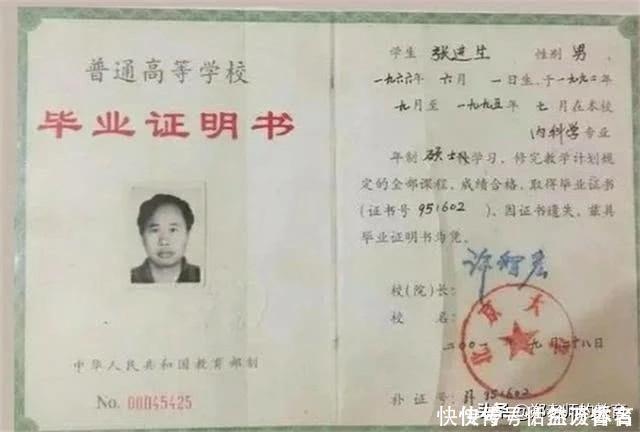 普通高等学校
毕业证明书
中华人民共和国教育部制
No. 00045425
学生 张进生 性别 男 、
一九六六年 六月 一日生,于一九九二年
九月至 一九九五年 七月在本校
内科学专业
年制 硕士班学习,修完教学计划规
定的全部课程,成绩合格,取得毕业证书
(证书号 951602 )。因证书遗失,兹具
毕业证明书为凭。
许智宏
校(院)长:
校 名:
北京大
二〇〇一年 九月二十八日
补 证 号: 951602
头条 @郑老师的教育
快传号/佑益波香香